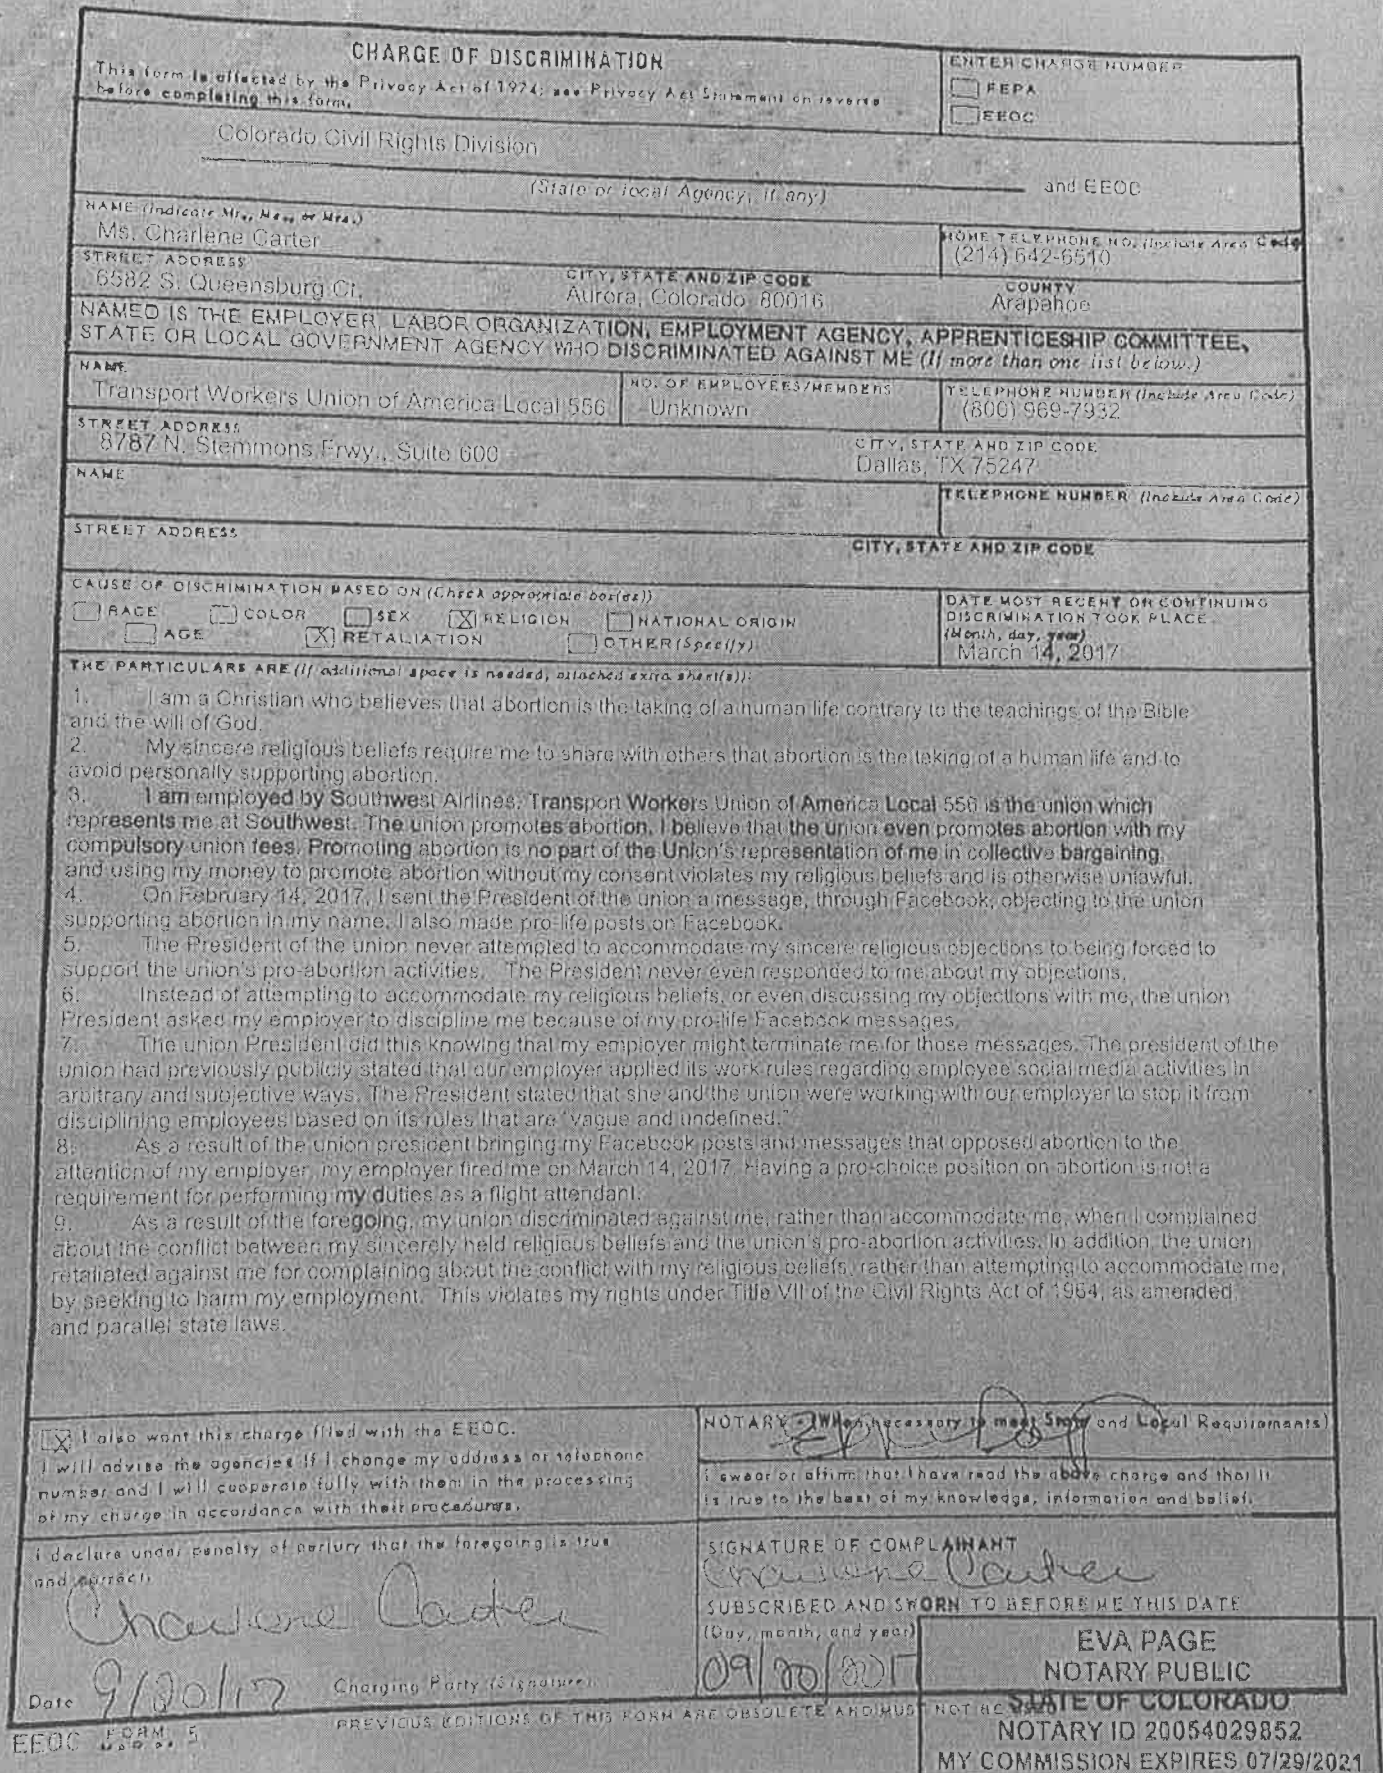 CHARGE OF DISCRIMINATION
This form is affected by the Privacy Act of 1974; see Privacy Act Statement on reverse
before completing this form.
ENTER CHARGE NUMBER
FEPA
EEOC
Colorado Civil Rights Division
(State or local Agency, if any)
and EEOC
NAME (Indicate Mr., Ms., or Mrs.)
Ms. Charlene Carter
HOME TELEPHONE NO. (Include Area Code)
(214) 642-6510
STREET ADDRESS
6582 S. Queensburg Ct.
CITY, STATE AND ZIP CODE
Aurora, Colorado 80016
COUNTY
Arapahoe
NAMED IS THE EMPLOYER, LABOR ORGANIZATION, EMPLOYMENT AGENCY, APPRENTICESHIP COMMITTEE,
STATE OR LOCAL GOVERNMENT AGENCY WHO DISCRIMINATED AGAINST ME (If more than one list below.)
NAME
Transport Workers Union of America Local 556
NO. OF EMPLOYEES/MEMBERS
Unknown
TELEPHONE NUMBER (Include Area Code)
(800) 969-7932
STREET ADDRESS
8787 N. Stemmons Frwy., Suite 600
CITY, STATE AND ZIP CODE
Dallas, TX 75247
NAME
TELEPHONE NUMBER (Include Area Code)
STREET ADDRESS
CITY, STATE AND ZIP CODE
CAUSE OF DISCRIMINATION BASED ON (Check appropriate box(es))
RACE COLOR SEX X RELIGION NATIONAL ORIGIN
AGE X RETALIATION OTHER (Specify)
DATE MOST RECENT OR CONTINUING
DISCRIMINATION TOOK PLACE
(Month, day, year)
March 14, 2017
THE PARTICULARS ARE (If additional space is needed, attached extra sheet(s)):
1. I am a Christian who believes that abortion is the taking of a human life contrary to the teachings of the Bible
and the will of God.
2. My sincere religious beliefs require me to share with others that abortion is the taking of a human life and to
avoid personally supporting abortion.
3. I am employed by Southwest Airlines. Transport Workers Union of America Local 556 is the union which
represents me at Southwest. The union promotes abortion. I believe that the union even promotes abortion with my
compulsory union fees. Promoting abortion is no part of the Union's representation of me in collective bargaining,
and using my money to promote abortion without my consent violates my religious beliefs and is otherwise unlawful.
4. On February 14, 2017, I sent the President of the union a message, through Facebook, objecting to the union
supporting abortion in my name. I also made pro-life posts on Facebook.
5. The President of the union never attempted to accommodate my sincere religious objections to being forced to
support the union's pro-abortion activities. The President never even responded to me about my objections.
6. Instead of attempting to accommodate my religious beliefs, or even discussing my objections with me, the union
President asked my employer to discipline me because of my pro-life Facebook messages.
7. The union President did this knowing that my employer might terminate me for those messages. The president of the
union had previously publicly stated that our employer applied its work rules regarding employee social media activities in
arbitrary and subjective ways. The President stated that she and the union were working with our employer to stop it from
disciplining employees based on its rules that are "vague and undefined."
8. As a result of the union president bringing my Facebook posts and messages that opposed abortion to the
attention of my employer, my employer fired me on March 14, 2017. Having a pro-choice position on abortion is not a
requirement for performing my duties as a flight attendant.
9. As a result of the foregoing, my union discriminated against me, rather than accommodate me, when I complained
about the conflict between my sincerely held religious beliefs and the union's pro-abortion activities. In addition, the union
retaliated against me for complaining about the conflict with my religious beliefs, rather than attempting to accommodate me,
by seeking to harm my employment. This violates my rights under Title VII of the Civil Rights Act of 1964, as amended,
and parallel state laws.
X I also want this charge filed with the EEOC.
I will advise the agencies if I change my address or telephone
number and I will cooperate fully with them in the processing
of my charge in accordance with their procedures.
NOTARY - (When necessary to meet State and Local Requirements)
I swear or affirm that I have read the above charge and that it
is true to the best of my knowledge, information and belief.
I declare under penalty of perjury that the foregoing is true
and correct.
Charlene Carter
Date 9/20/17 Charging Party (Signature)
SIGNATURE OF COMPLAINANT
Charlene Carter
SUBSCRIBED AND SWORN TO BEFORE ME THIS DATE
(Day, month, and year)
09/20/2017
EVA PAGE
NOTARY PUBLIC
STATE OF COLORADO
NOTARY ID 20054029852
MY COMMISSION EXPIRES 07/29/2021
EEOC FORM 5
PREVIOUS EDITIONS OF THIS FORM ARE OBSOLETE AND MUST NOT BE